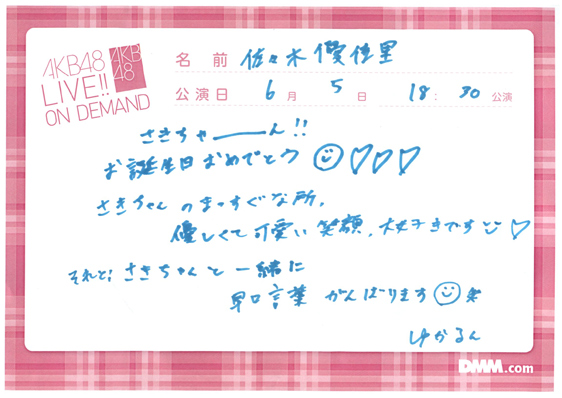 AKB48
LIVE!!
ON DEMAND
AKB
48
名前 佐々木優佳里
公演日 6月 5日 18:30公演
さきちゃーーん!!
お誕生日おめでとう
さきちゃんのまっすぐな所、
優しくて可愛い笑顔、大好きです
それと! さきちゃんと一緒に
早口言葉 がんばります 笑
ゆかるん
DMM.com